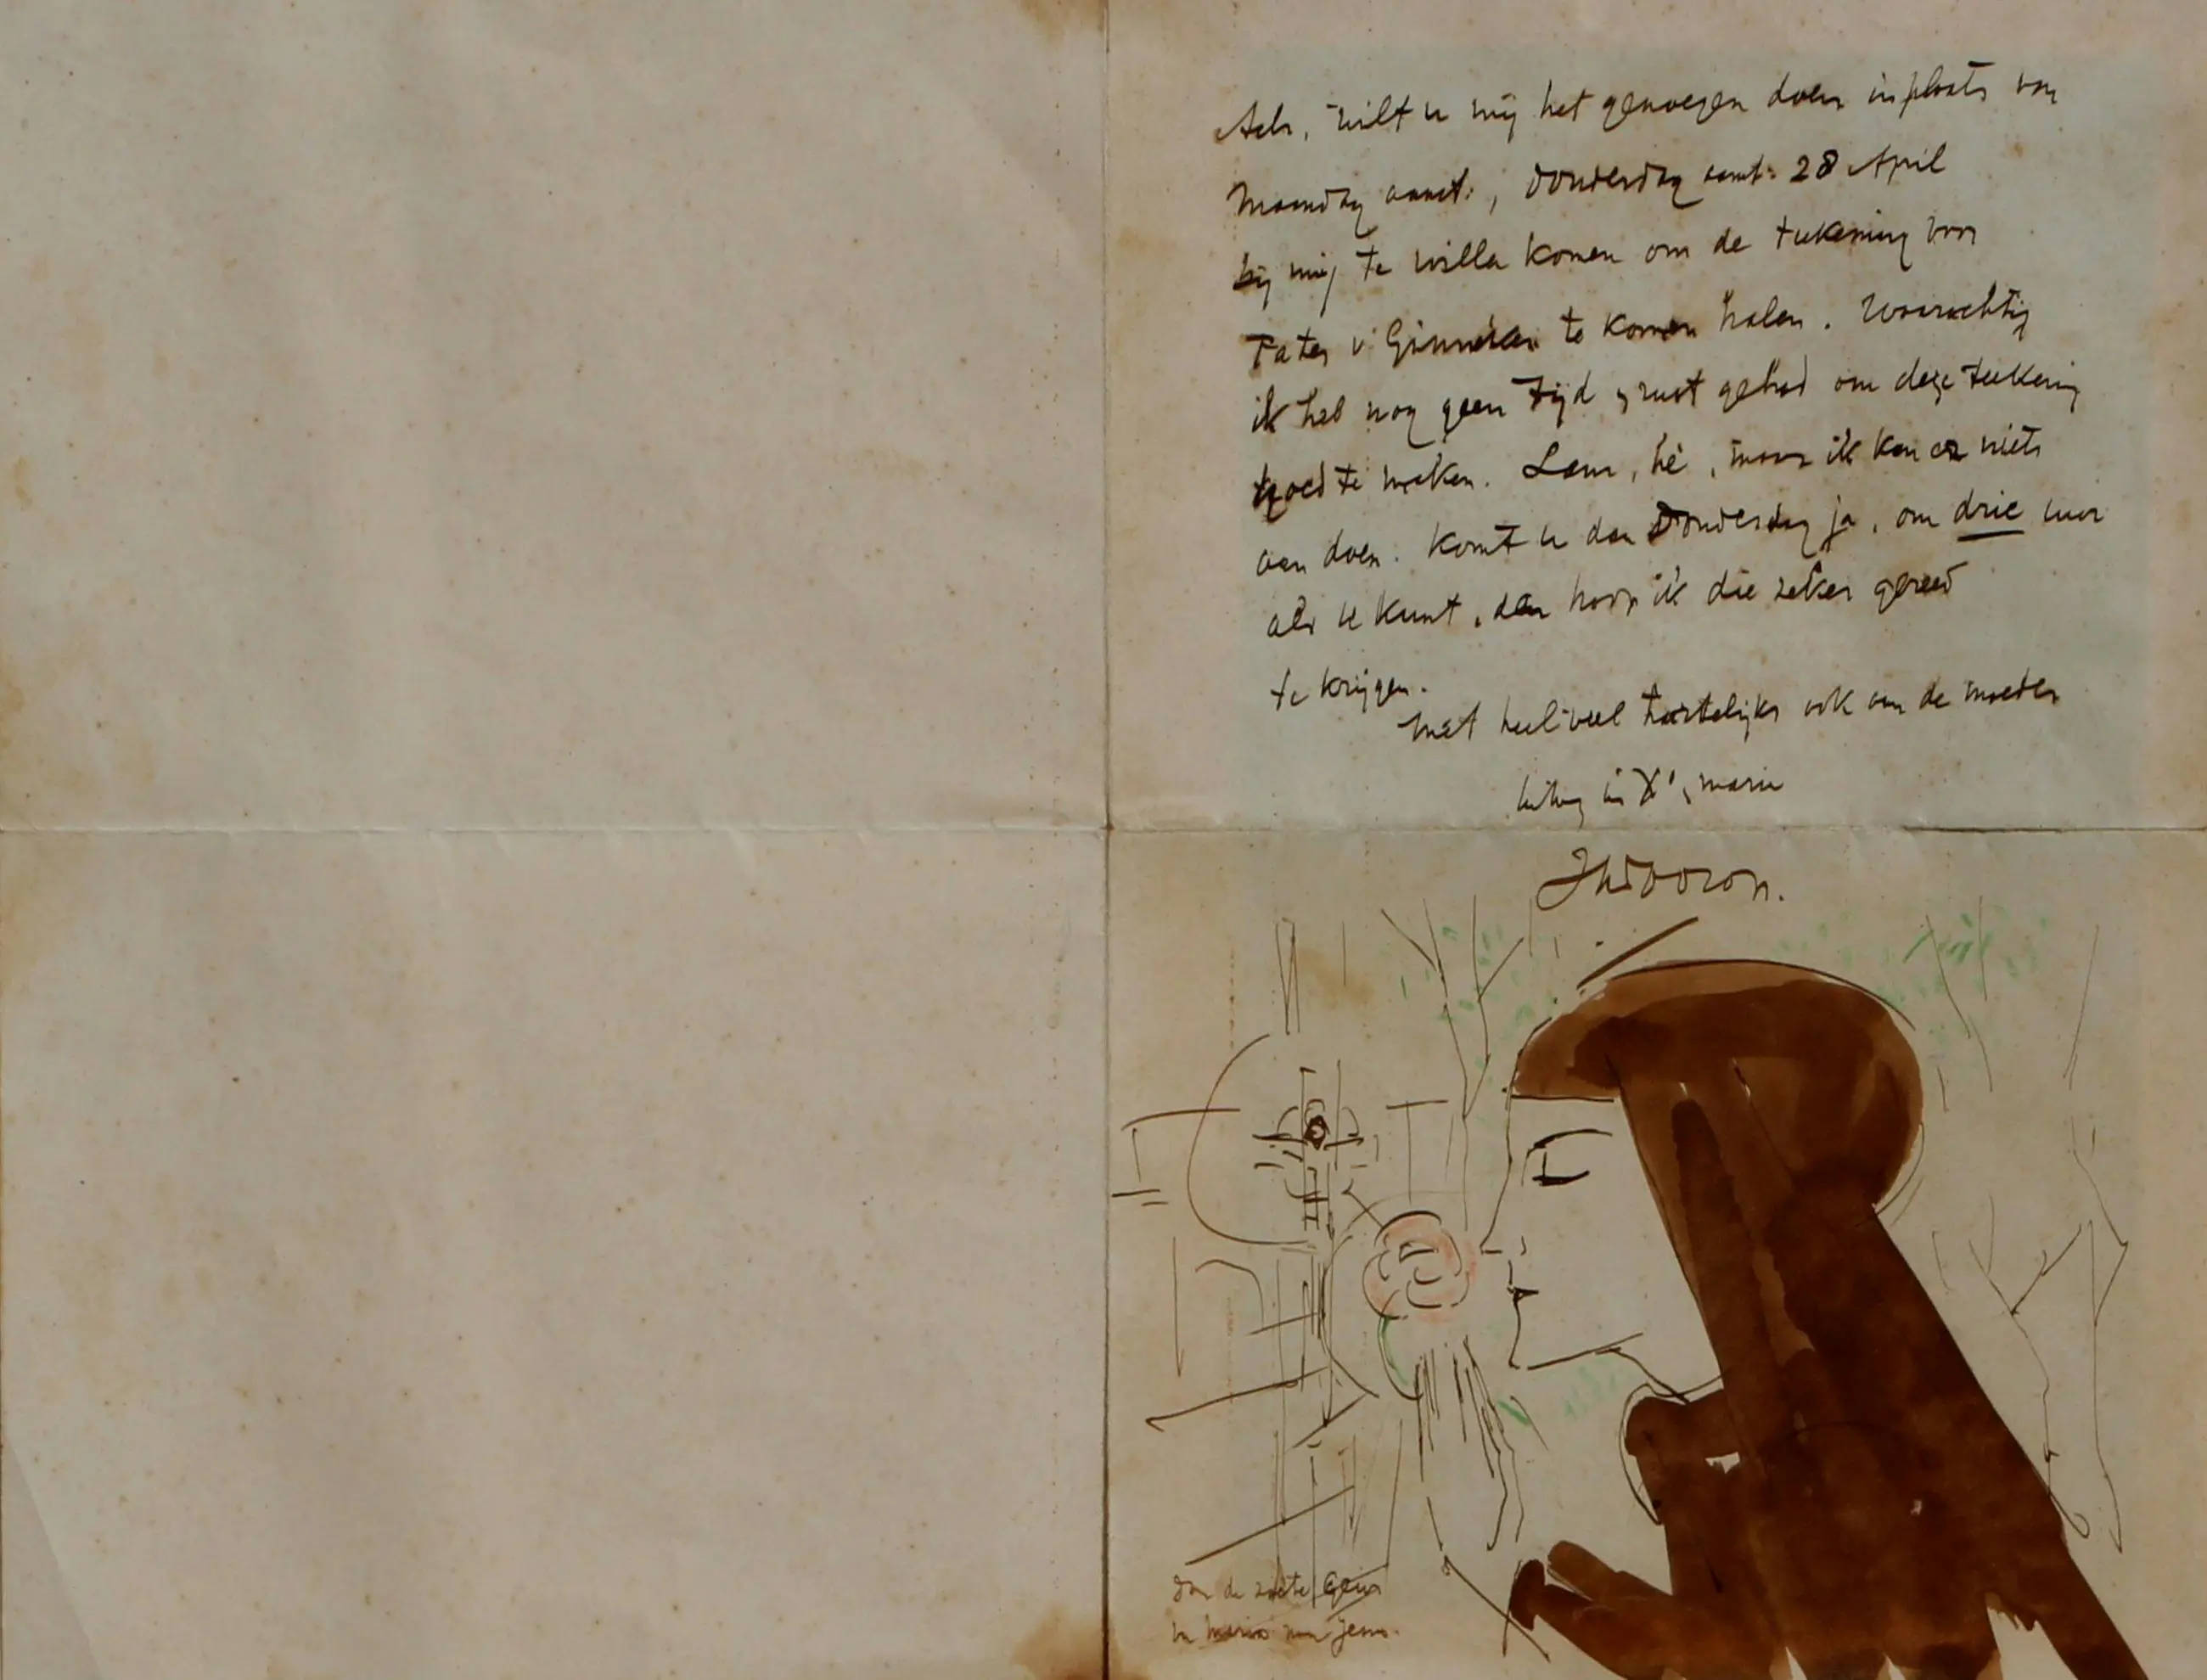 Ach, wilt u mij het genoegen doen in plaats van
Maandag aanst:, Donderdag aanst: 28 April
bij mij te willen komen om de teekening voor
Pater v. Ginneken te komen halen. Waarachtig
ik heb nog geen tijd & rust gehad om deze teekening
goed te maken. Lam, hè, maar ik kan er niets
aan doen. Komt u dan Donderdag ja, om drie uur
als u kunt, dan hoop ik die zeker gereed
te krijgen.
Met heel veel hartelijks ook aan de moeder
in X', & marie
Jan Toorop.
de zoete geur
van Maria en Jesus.